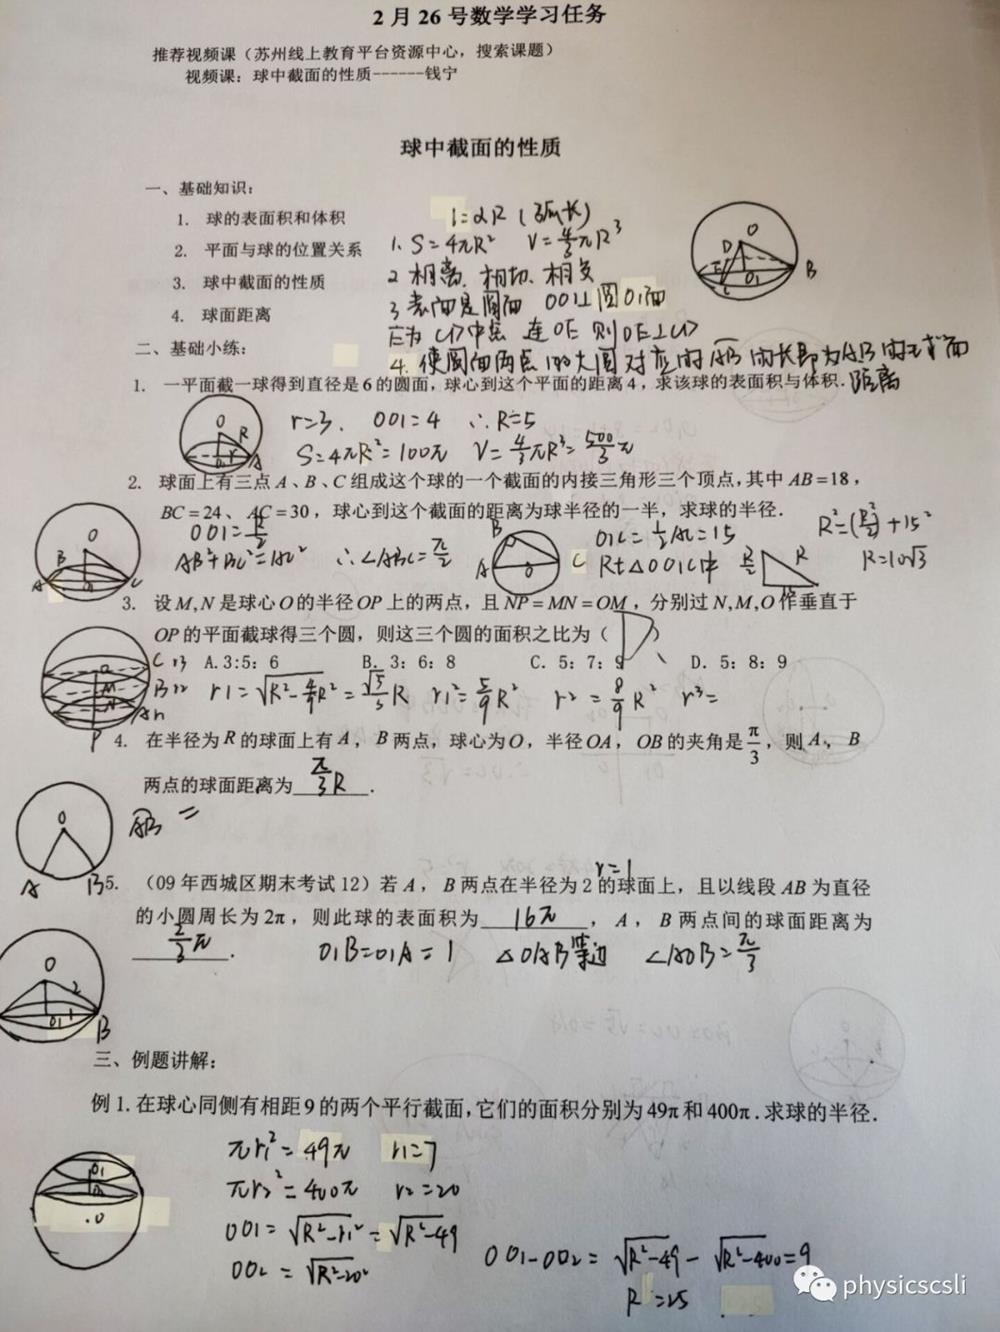 2月26号数学学习任务
推荐视频课（苏州线上教育平台资源中心，搜索课题）
视频课：球中截面的性质------钱宁
球中截面的性质
一、基础知识：
1. 球的表面积和体积 l=αR（弧长）
2. 平面与球的位置关系 1. S=4πR² V=4/3πR³
3. 球中截面的性质 2 相离、相切、相交
4. 球面距离 3 表面是圆面 OO1⊥圆O1面
E为 中点 连OE 则OE⊥
二、基础小练： 4. 使圆面两点的大圆对应的AB的长即为AB的球面
1. 一平面截一球得到直径是6的圆面，球心到这个平面的距离4，求该球的表面积与体积. 距离
r=3. OO1=4 ∴R=5
S=4πR²=100π V=4/3πR³=500/3π
2. 球面上有三点A、B、C组成这个球的一个截面的内接三角形三个顶点，其中AB=18，
BC=24、AC=30，球心到这个截面的距离为球半径的一半，求球的半径.
OO1=R/2 O1C=1/2AC=15 R²=(R/2)²+15²
AB²+BC²=AC² ∴∠ABC=π/2 Rt△OO1C中 R=10√3
3. 设M,N是球心O的半径OP上的两点，且NP=MN=OM，分别过N,M,O作垂直于
OP的平面截球得三个圆，则这三个圆的面积之比为（ ）
A. 3:5：6 B. 3：6：8 C. 5：7：9 D. 5：8：9
r1=√R²-4/9R²=√5/3R r1²=5/9R² r2=8/9R² r³=
4. 在半径为R的球面上有A，B两点，球心为O，半径OA，OB的夹角是π/3，则A，B
两点的球面距离为 π/3R .
AB =
r=1
5. （09年西城区期末考试12）若A，B两点在半径为2的球面上，且以线段AB为直径
的小圆周长为2π，则此球的表面积为 16π ，A，B两点间的球面距离为
2/3π .
O1B=O1A=1 △OAB等边 ∠AOB=π/3
三、例题讲解：
例1.在球心同侧有相距9的两个平行截面，它们的面积分别为49π和400π.求球的半径.
πr1²=49π r1=7
πr2²=400π r2=20
OO1=√R²-r1²=√R²-49
OO2=√R²-20²
OO1-OO2=√R²-49-√R²-400=9
R=25
physicscsli